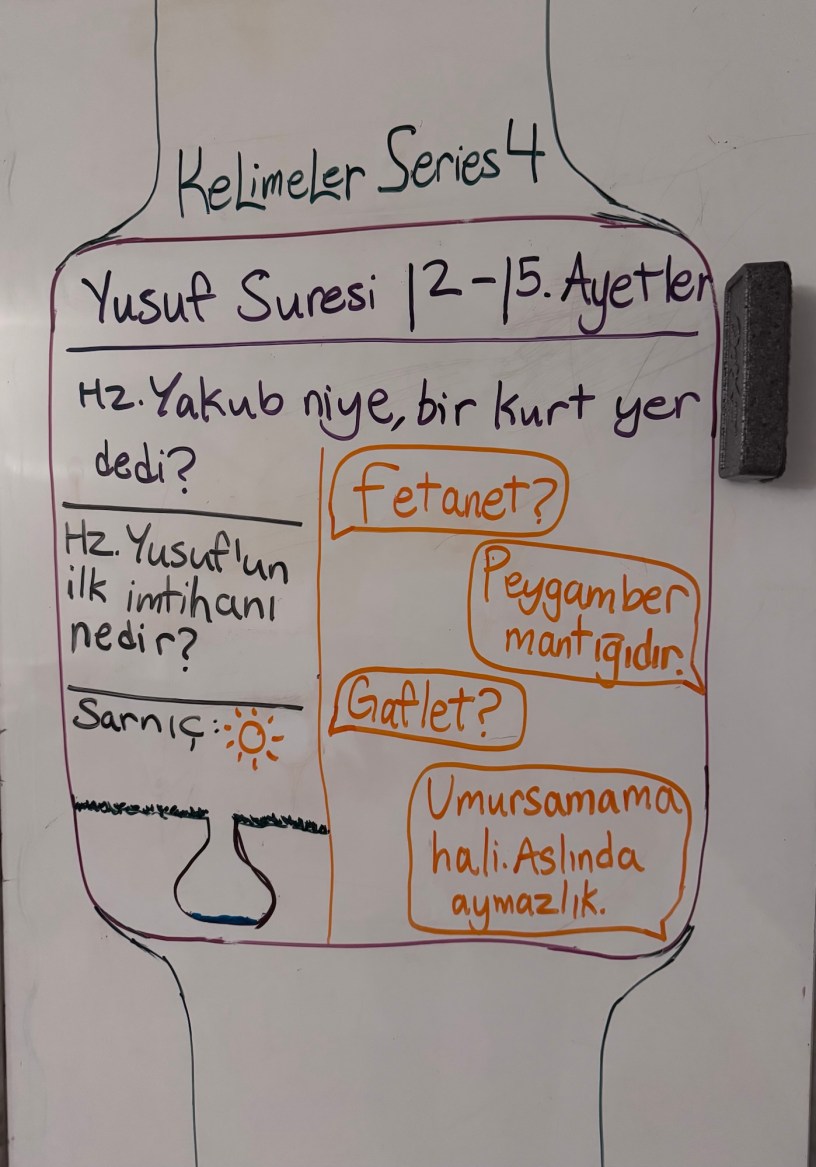 KeLimeLer Series 4
Yusuf Suresi 12-15. Ayetler
Hz. Yakub niye, bir kurt yer
dedi?
Hz. Yusuf'un
ilk imtihanı
nedir?
Sarnıç:
Fetanet?
Peygamber
mantığıdır.
Gaflet?
Umursamama
hali. Aslında
aymazlık.